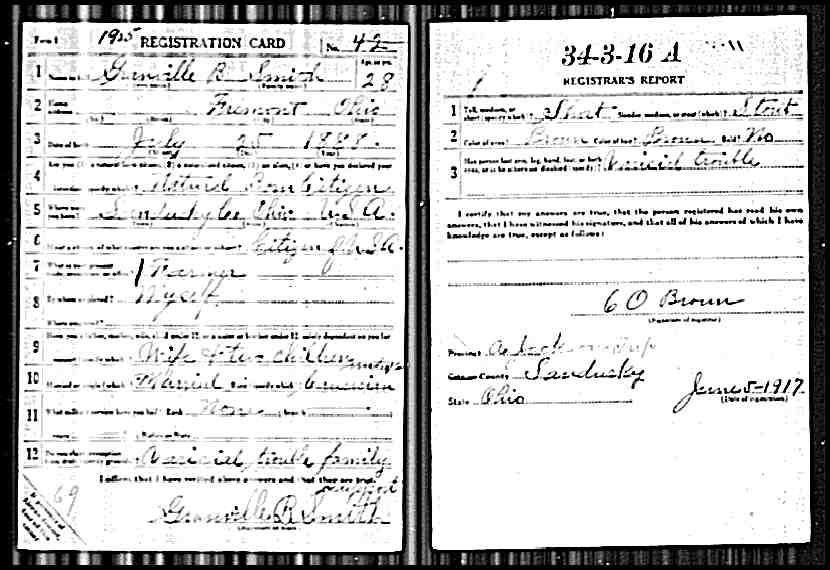 Form 1 1925 REGISTRATION CARD No. 42
1 Granville B Smith Age, in yrs. 28
2 Home address Fremont Ohio
3 Date of birth July 25 1888
4 Natural Born Citizen
5 Where were you born? Sandusky Co Ohio U.S.A.
6 Citizen of U.S.A.
7 What is your present Farmer
8 By whom employed? Myself
Where employed?
9 Have you a father, mother, wife, child under 12, or a sister or brother under 12, solely dependent on you for
support (specify which)? Wife & two children
10 Married or single (which)? Married Race (specify which)? Caucasian
11 What military service have you had? Rank None branch
years Nation or State
12 Do you claim exemption from draft (specify grounds)? Varicial trouble family
support
I affirm that I have verified above answers and that they are true.
69
Granville B Smith
34-3-16 A
REGISTRAR'S REPORT
1 Tall, medium, or short (specify which)? Short Slender, medium, or stout (which)? Stout
2 Color of eyes? Brown Color of hair? Brown Bald? No
3 Has person lost arm, leg, hand, foot, or both eyes, or is he otherwise disabled (specify)? Varicial trouble
I certify that my answers are true, that the person registered has read his own
answers, that I have witnessed his signature, and that all of his answers of which I have
knowledge are true, except as follows:
C O Brown
(Signature of registrar)
Precinct A Jackson twp
County Sandusky
State Ohio June 5-1917
(Date of registration)